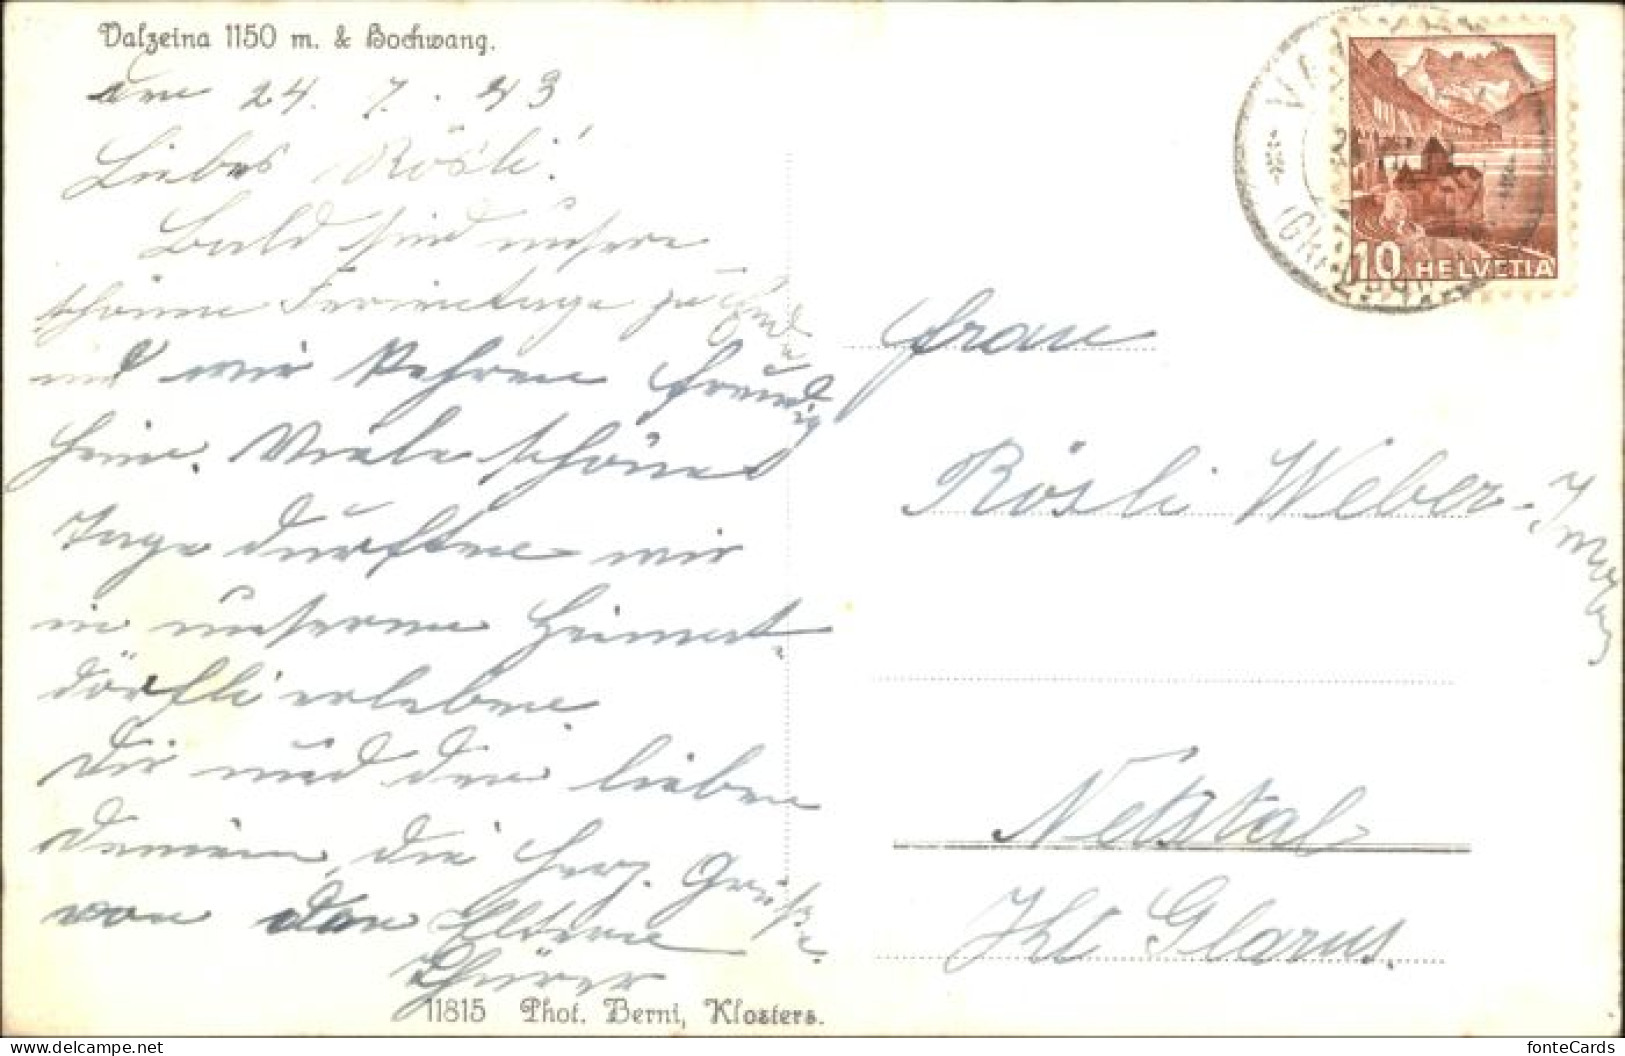 Valzeina 1150 m. & Hochwang.
den 24. 7. 43
Liebes Rösli!
Bald sind unsere
schönen Ferientage zu Ende
und wir kehren freudig
heim. Viele schöne
Tage durften wir
in unserem Heimat-
dörfli erleben.
Dir und den lieben
Deinen, die herz. Grüße
von den Eltern
Thürer
11815 Phot. Berni, Klosters.
10 HELVETIA
Frau
Rösli Weber-
Netstal
Kt Glarus.
fonteCards